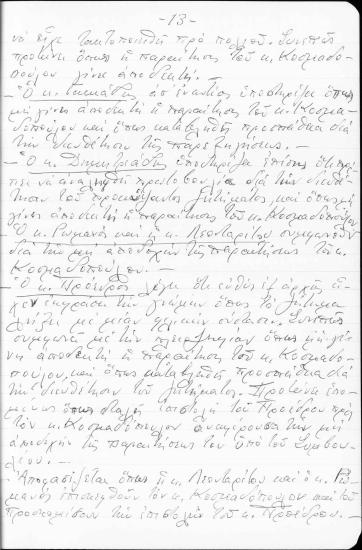 -13-
νά εἶχε τακτοποιηθῆ πρό πολλοῦ. Συνεπῶς
προτείνει ὅπως ἡ παραίτησις τοῦ κ. Κοσμαδο-
πούλου γίνει ἀποδεκτή.
- Ὁ κ. ἀντιθέτως ὑποστηρίζει ὅπως
μή γίνει ἀποδεκτή ἡ παραίτησις τοῦ κ. Κοσμα-
δοπούλου καί ὅπως καταβληθῇ προσπάθεια διά
τήν διευθέτησιν τῆς παρεξηγήσεως. -
- Ὁ κ. Δημητριάδης ὑποστηρίζει ἐπίσης ὅτι πρέ-
πει νά ἀναληφθῇ πρωτοβουλία διά τήν διευθέ-
τησιν τοῦ προκύψαντος ζητήματος καί ὅπως μή
γίνει ἀποδεκτή ἡ παραίτησις τοῦ κ. Κοσμαδοπούλου
Ὁ κ. Ρωμανός καί ἡ κ. Λεονταρίτου συμφωνοῦν
διά τήν μή ἀποδοχήν τῆς παραιτήσεως τοῦ κ.
Κοσμαδοπούλου. -
- Ὁ κ. Πρόεδρος λέγει ὅτι εὐθύς ἐξ ἀρχῆς εἶ-
χεν ἐκφράσει τήν γνώμην ὅπως τό ζήτημα
λήξῃ μέ μίαν φιλικήν Συνεπῶς
συμφωνεῖ μέ τήν πλειοψηφίαν ὅπως μή γί-
νει ἀποδεκτή ἡ παραίτησις τοῦ κ. Κοσμαδο-
πούλου, καί ὅπως καταβληθῇ προσπάθεια διά
τήν διευθέτησιν τοῦ ζητήματος. Προτείνει ἑπο-
μένως ὅπως σταλῇ ἐπιστολή τοῦ Προέδρου πρός
τόν κ. Κοσμαδόπουλον ἀναφέρουσα τήν μή
ἀποδοχήν τῆς παραιτήσεώς του ὑπό τοῦ Συμβου-
λίου. -
- Ἀποφασίζεται ὅπως ἡ κ. Λεονταρίτου καί ὁ κ. Ρω-
μανός ἐπισκεφθοῦν τόν κ. Κοσμαδόπουλον καί τοῦ
προσκομίσουν τήν ἐπιστολήν τοῦ κ. Προέδρου. -